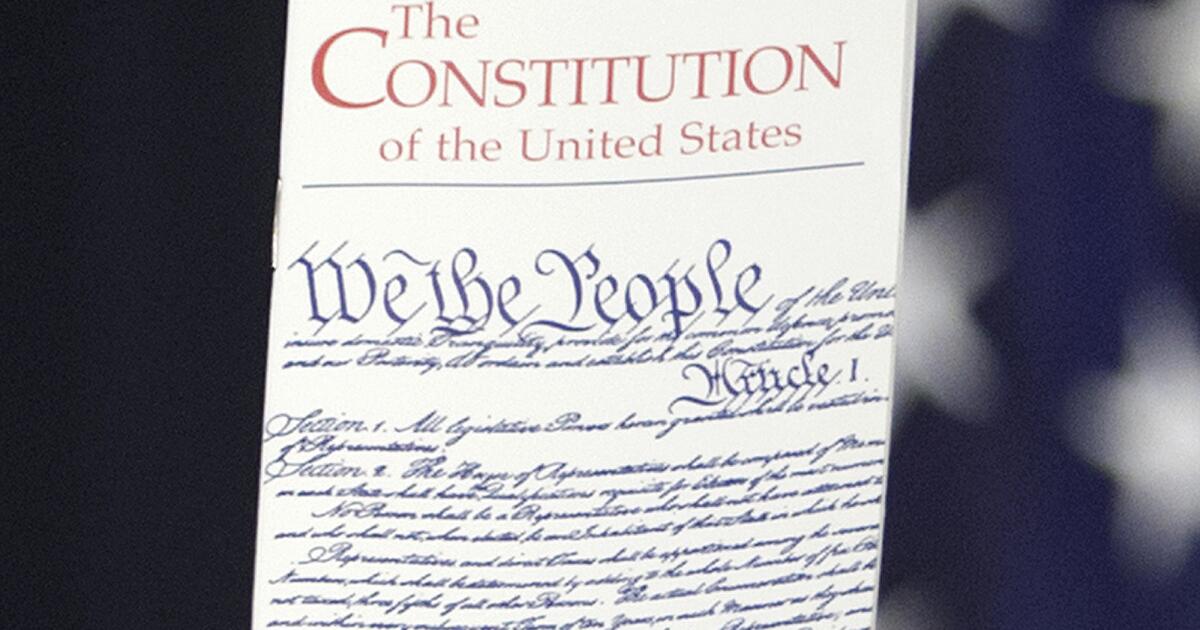 The
CONSTITUTION
of the United States
We the People of the Uni
insure domestic Tranquility, provide for the common defence, promo
and our Posterity, do ordain and establish this Constitution for the U
Article I.
Section. 1. All legislative Powers herein granted shall be vested in
of Representatives.
Section. 2. The House of Representatives shall be composed of Mem
in each State shall have Qualifications requisite for Electors of the most numer
No Person shall be a Representative who shall not have attained to
and who shall not, when elected, be an Inhabitant of that State in which he
Representatives and direct Taxes shall be apportioned among the several
Numbers, which shall be determined by adding to the whole Number of free
not taxed, three fifths of all other Persons. The actual Enumeration shall be
and within every subsequent Term of ten Years, in such Manner as